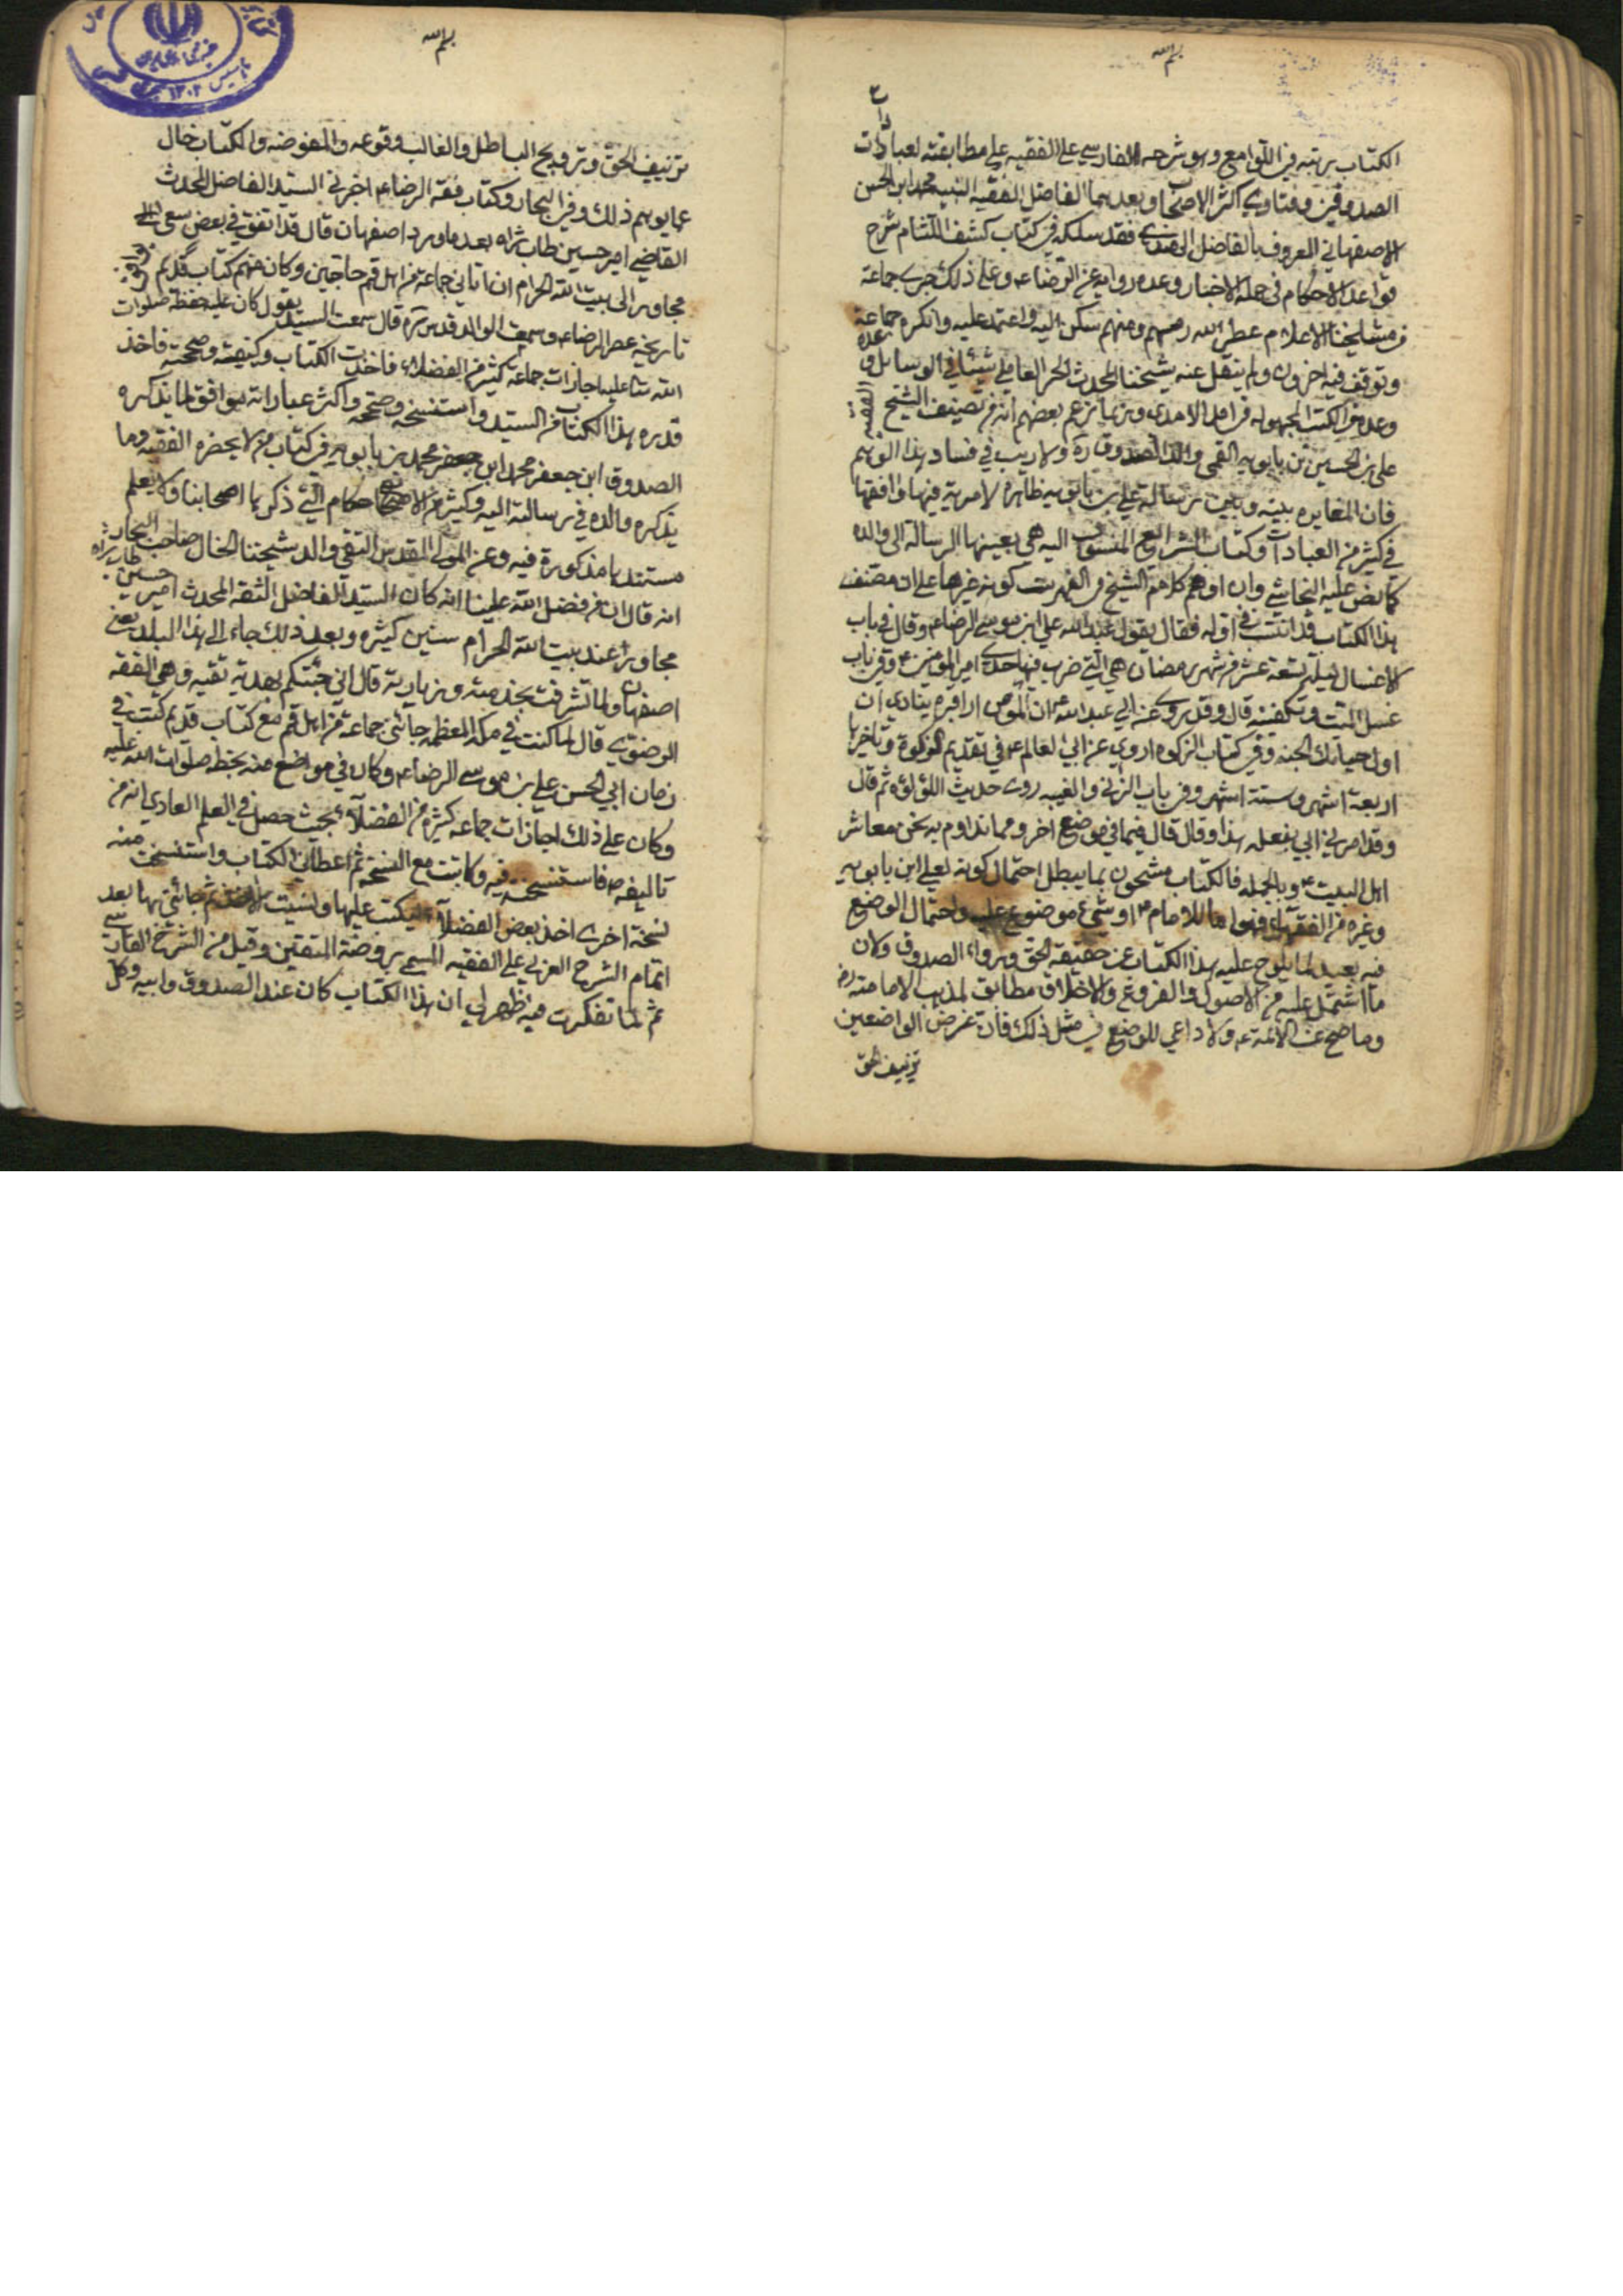 بسم الله
الكتاب برمته في اللوامع وهو شرحه الفارسي على الفقيه على مطابقته لعبارات
الصدوقين وفتاوي اكثر الاصحاب وبعدهما الفاضل الفقيه النبيه محمد ابن الحسن
الاصفهاني المعروف بالفاضل الهندي فقد سلكه في كتاب كشف اللثام شرح
قواعد الاحكام في جملة الاخبار وعده رواية عن الرضاء وعلى ذلك جرى جماعة
من مشايخنا الاعلام عطر الله رمسهم ومنهم سكن اليه واعتمد عليه وانكره جماعة
وتوقف فيه اخرون ولم ينقل عنه شيخنا المحدث الحر العاملي شيئا في الوسايل
وعده في الكتب المجهولة في امل الامل وربما زعم بعضهم انه من تصنيف الشيخ الفقيه
علي بن الحسين بن بابويه القمي والد الصدوق ره ولا ريب في فساد هذا الوهم
فان المغايره بينه وبين رسالة علي بن بابويه ظاهرة لا مرية فيها وان وافقها
في كثير من العبادات وكتاب الشرايع المنسوب اليه هي بعينها الرسالة الى والده
كما نص عليه النجاشي وان اوهم كلام الشيخ في الفهرست كونه غيرها على ان مصنف
هذا الكتاب قد انتسب في اوله فقال يقول عبد الله علي ابن موسى الرضاء وقال في باب
الاغسال ليلة تسعة عشر من شهر رمضان هي التي ضرب فيها جدي امير المؤمنين ع وفي باب
غسل الميت وتكفينه قال وقد يروى عن ابي عبد الله ع ان المؤمن اذا قبره ينادى ان
اول حبائك الجنة وفي كتاب الزكوة اروي عن ابي العالم ع في تقديم الزكوة وتاخيرها
اربعة اشهر وستة اشهر وفي باب الزنى والغيبه روى حديث اللؤلؤة ثم قال
وقد امرني ابي بفعله هذا وقال قال فيما في موضع اخر ومما نداوم به نحن معاشر
اهل البيت ع وبالجملة فالكتاب مشحون بما يبطل احتمال كونه لعلي ابن بابويه
وغيره من الفقهاء فهو اما للامام ع او شيء موضوع عليه واحتمال الوضع
فيه بعيد لما يلوح عليه هذا الكتاب عن حقيقة الحق ورواء الصدوق ولان
ما اشتمل عليه من الاصول والفروع والاخلاق مطابق لمذهب الامامية
وما صح عن الائمة ع ولا داعي للوضع في مثل ذلك فان غرض الواضعين
تزييف الحق
بسم الله
تزييف الحق وترويج الباطل والغالب وقوعه والمفوضه والكتاب خال
عما يوهم ذلك وفي البحار وكتاب فقه الرضاء اخبرني السيد الفاضل المحدث
القاضي امير حسين طاب ثراه بعد ما ورد اصفهان قال قد اتفق في بعض سني
مجاورتي الى بيت الله الحرام ان اتاني جماعة من اهل قم حاجين وكان معهم كتاب قديم يوافق
تاريخه عصر الرضاء وسمعت الوالد قدس سره قال سمعت السيد يقول كان عليه خطه صلوات
الله عليه اجازات جماعة كثيرة من الفضلاء فاخذت الكتاب وكتبته وصححته فاخذ
قدره هذا الكتاب من السيد واستنسخه وصححه واكثر عباراته يوافق لما يذكره
الصدوق ابن جعفر محمد ابن بابويه في كتاب من لا يحضره الفقيه وما
يذكره والده في رسالته اليه وكثير من الاحكام التي ذكرها اصحابنا ولا يعلم
مستندها مذكورة فيه وعن المولى المقدس التقي والد شيخنا الخال صاحب البحار
انه قال ان من فضل الله علينا انه كان السيد الفاضل الثقة المحدث امير حسين طاب ثراه
مجاورا عند بيت الله الحرام سنين كثيره وبعد ذلك جاء الى هذا البلد يعني
اصفهان ولما تشرفت بخدمته وزيارته قال اني جئتكم بهدية نفيسة وهي الفقه
الرضوي قال لما كنت في مكة المعظمة جائني جماعة من اهل قم مع كتاب قديم كتب في
زمان ابي الحسن علي بن موسى الرضاء وكان في مواضع منه بخطه صلوات الله عليه
وكان على ذلك اجازات جماعة كثيرة من الفضلاء بحيث حصل لي العلم العادي انه من
تاليفه ع فاستنسخته فيه وكاتبت مع النسخة ثم اعطاني الكتاب واستنسخت منه
نسخة اخرى اخذ بعض الفضلاء ليكتب عليها ونسيت الاخذ ثم جائني بها بعد
اتمام الشرح العربي على الفقيه المسمى بروضة المتقين وقبل من الشرح الفارسي
ثم لما تفكرت فيه ظهر لي ان هذا الكتاب كان عند الصدوق وابيه وكل